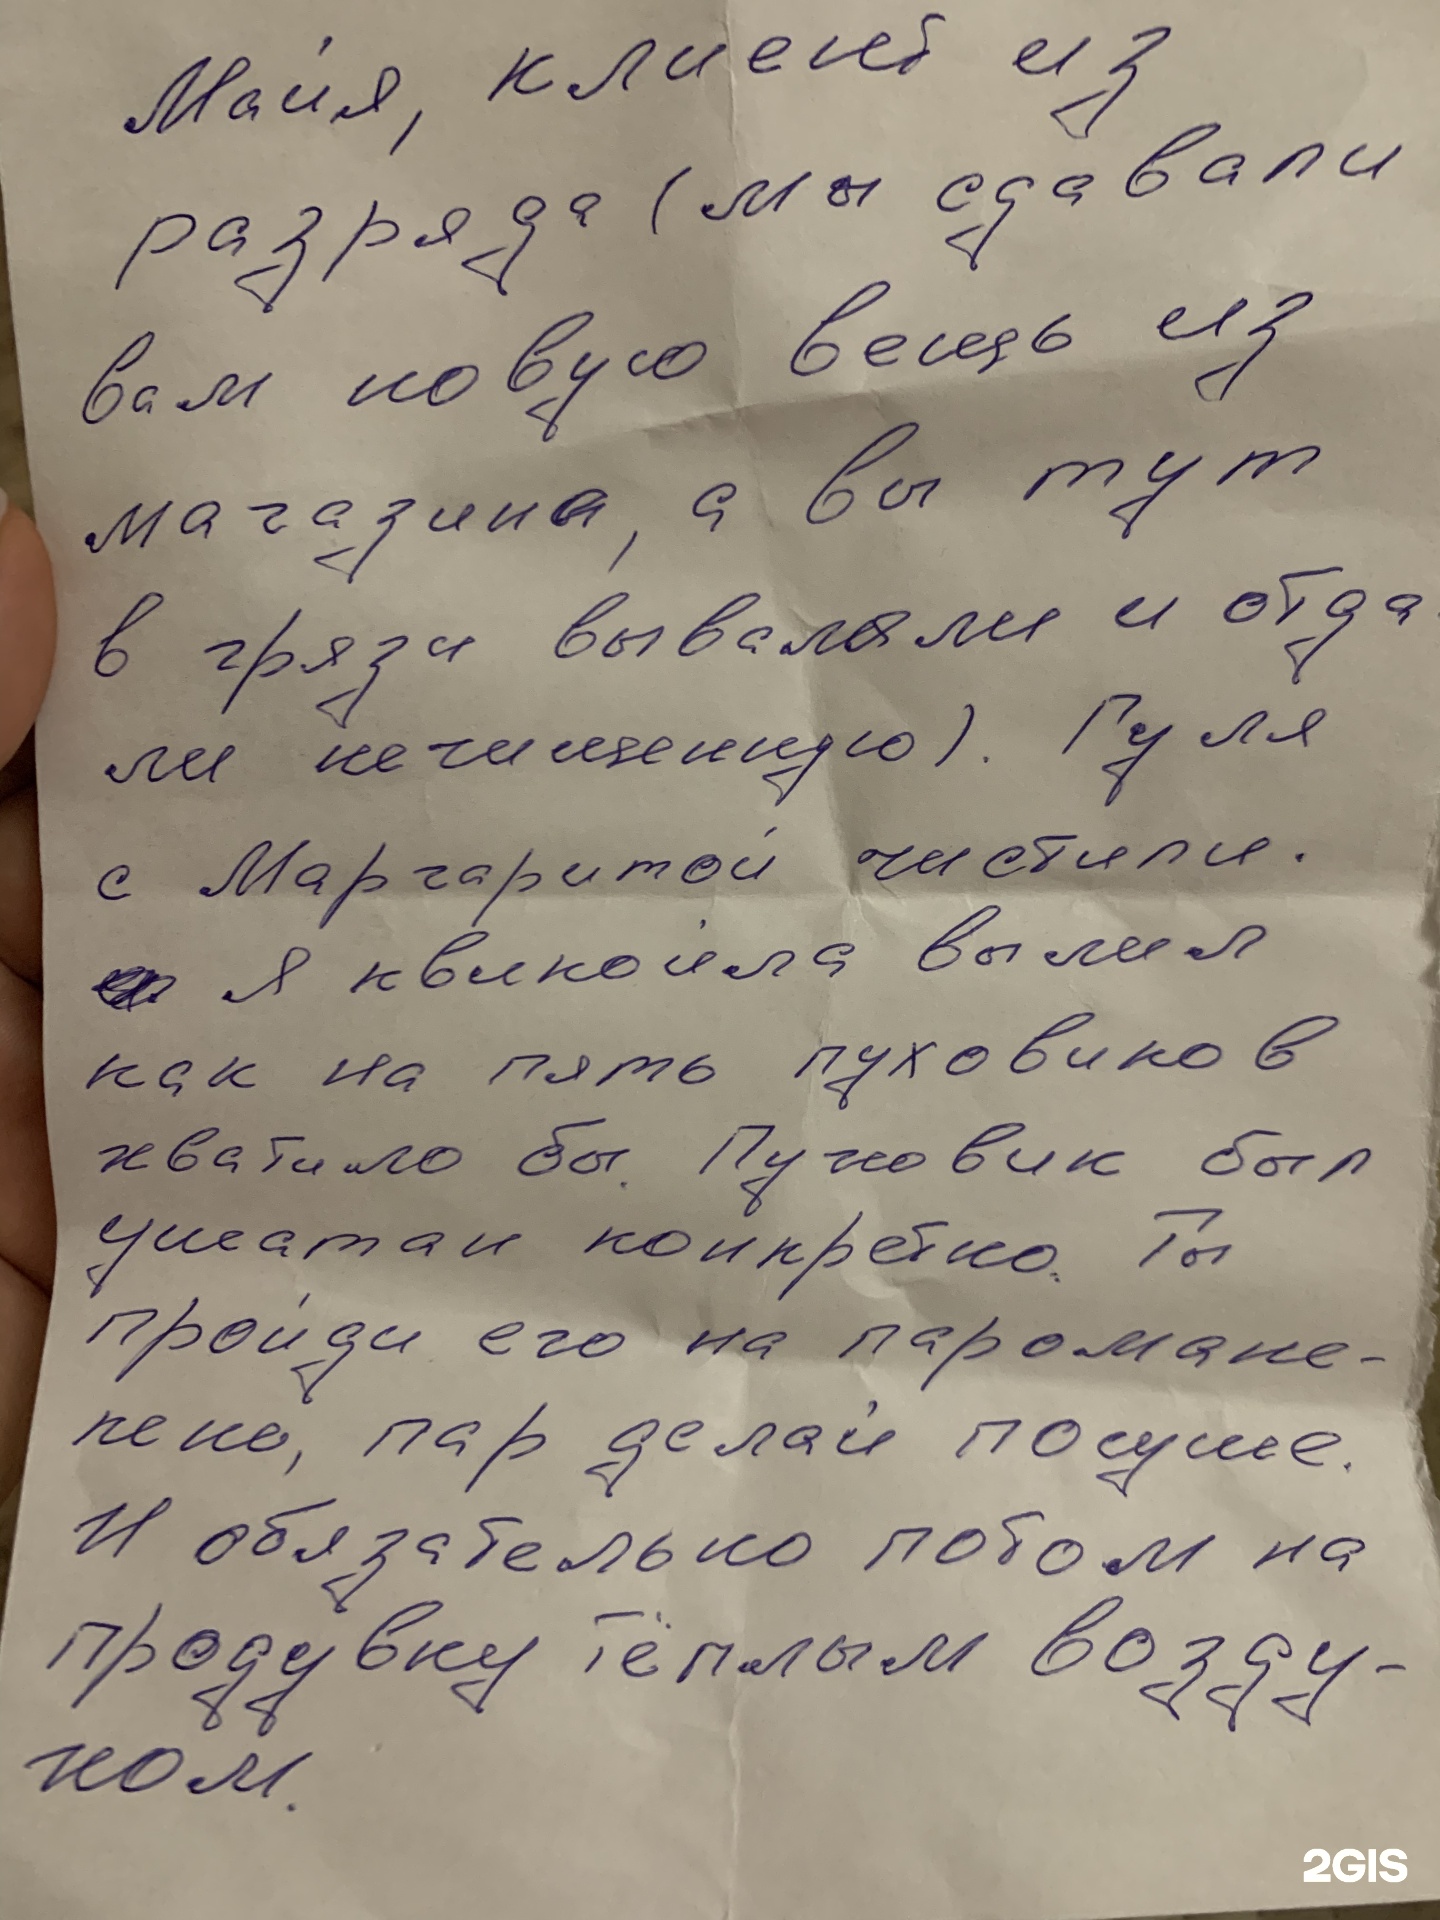 Майя, клиент из
разряда (мы сдавали
вам новую вещь из
магазина, а вы тут
в грязи вываляли и отда
ли нечищенную). Гуля
с Маргаритой чистили.
Я квикойла вылил
как на пять пуховиков
хватило бы. Пуховик был
ушатан конкретно. Ты
пройди его на паромане-
кене, пар делай посуше.
И обязательно потом на
продувку тёплым возду-
хом.
2GIS